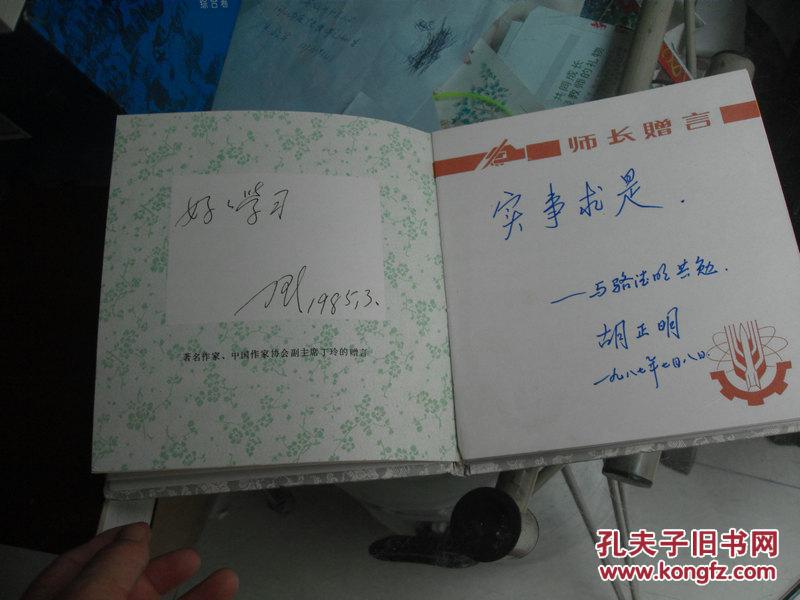 综合卷
共同成长
教师的礼物
好好学习
丁玲 1985.3.
著名作家、中国作家协会副主席丁玲的赠言
师长赠言
实事求是.
——与骆法明共勉.
胡正明
一九八七年七月八日.
孔夫子旧书网
www.kongfz.com